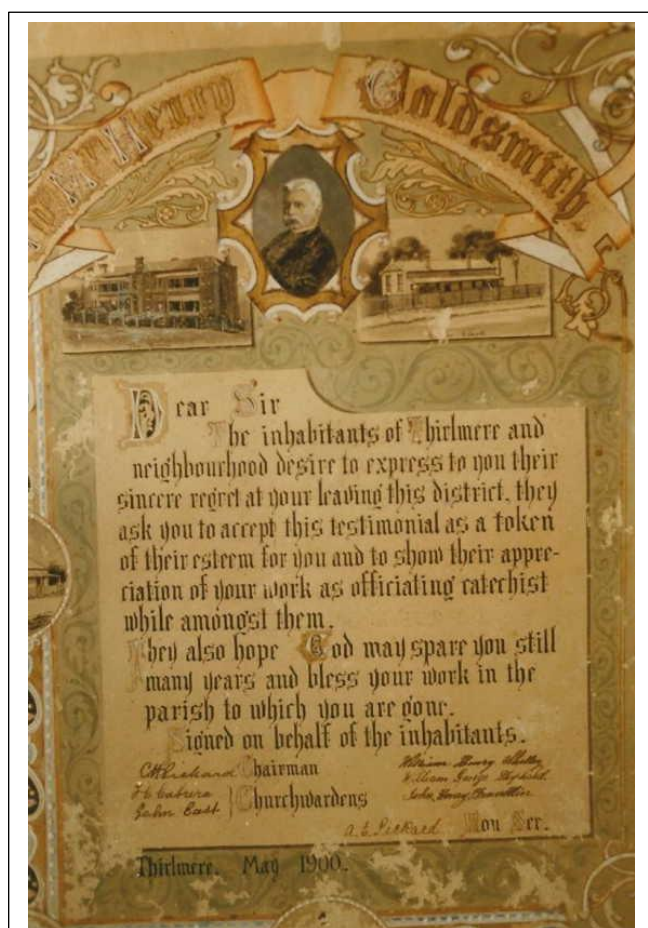 To Mr Henry Goldsmith
Dear Sir
The inhabitants of Thirlmere and
neighbourhood desire to express to you their
sincere regret at your leaving this district. they
ask you to accept this testimonial as a token
of their esteem for you and to show their appre-
ciation of your work as officiating catechist
while amongst them.
They also hope God may spare you still
many years and bless your work in the
parish to which you are gone.
Signed on behalf of the inhabitants.
Chairman William Henry
William George
John East Churchwardens John Henry
A. E. Hon Sec.
Thirlmere. May 1900.